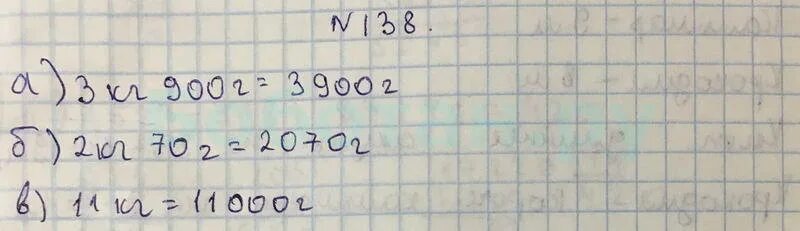 N138.
а) 3 кг 900 г = 3900 г
б) 2 кг 70 г = 2070 г
в) 11 кг = 11000 г